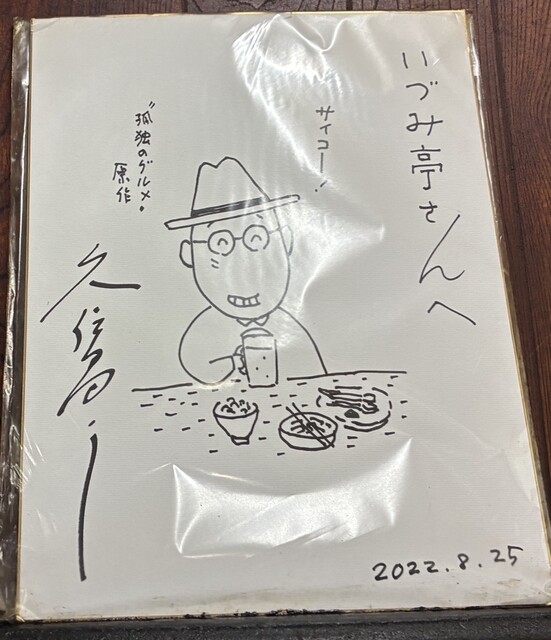 いづみ亭さんへ
サイコー！
"孤独のグルメ"
原作
久住昌之
2022.8.25